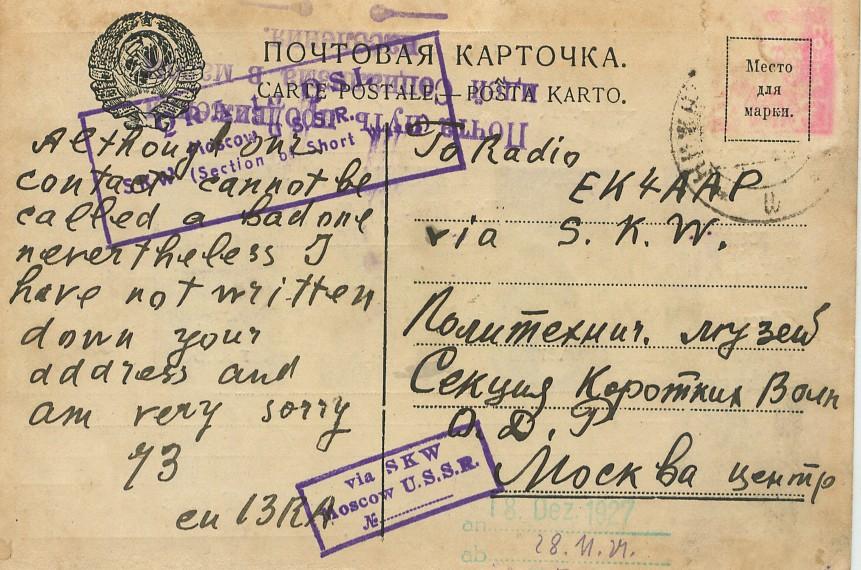 ПОЧТОВАЯ КАРТОЧКА.
CARTE POSTALE.—POŜTA KARTO.
Место
для
марки.
Although our
contact cannot be
called a bad one
nevertheless I
have not written
down your
address and
am very sorry
73
eu 13RA
To Radio
EK4AAP
via S. K. W.
Политехнич. музей
Секция Коротких Волн
О. Д. Р
Москва центр
Moscow U.S.S.R.
SKW (Section of Short
via SKW
Moscow U.S.S.R.
№
18. Dez. 1927
an
ab